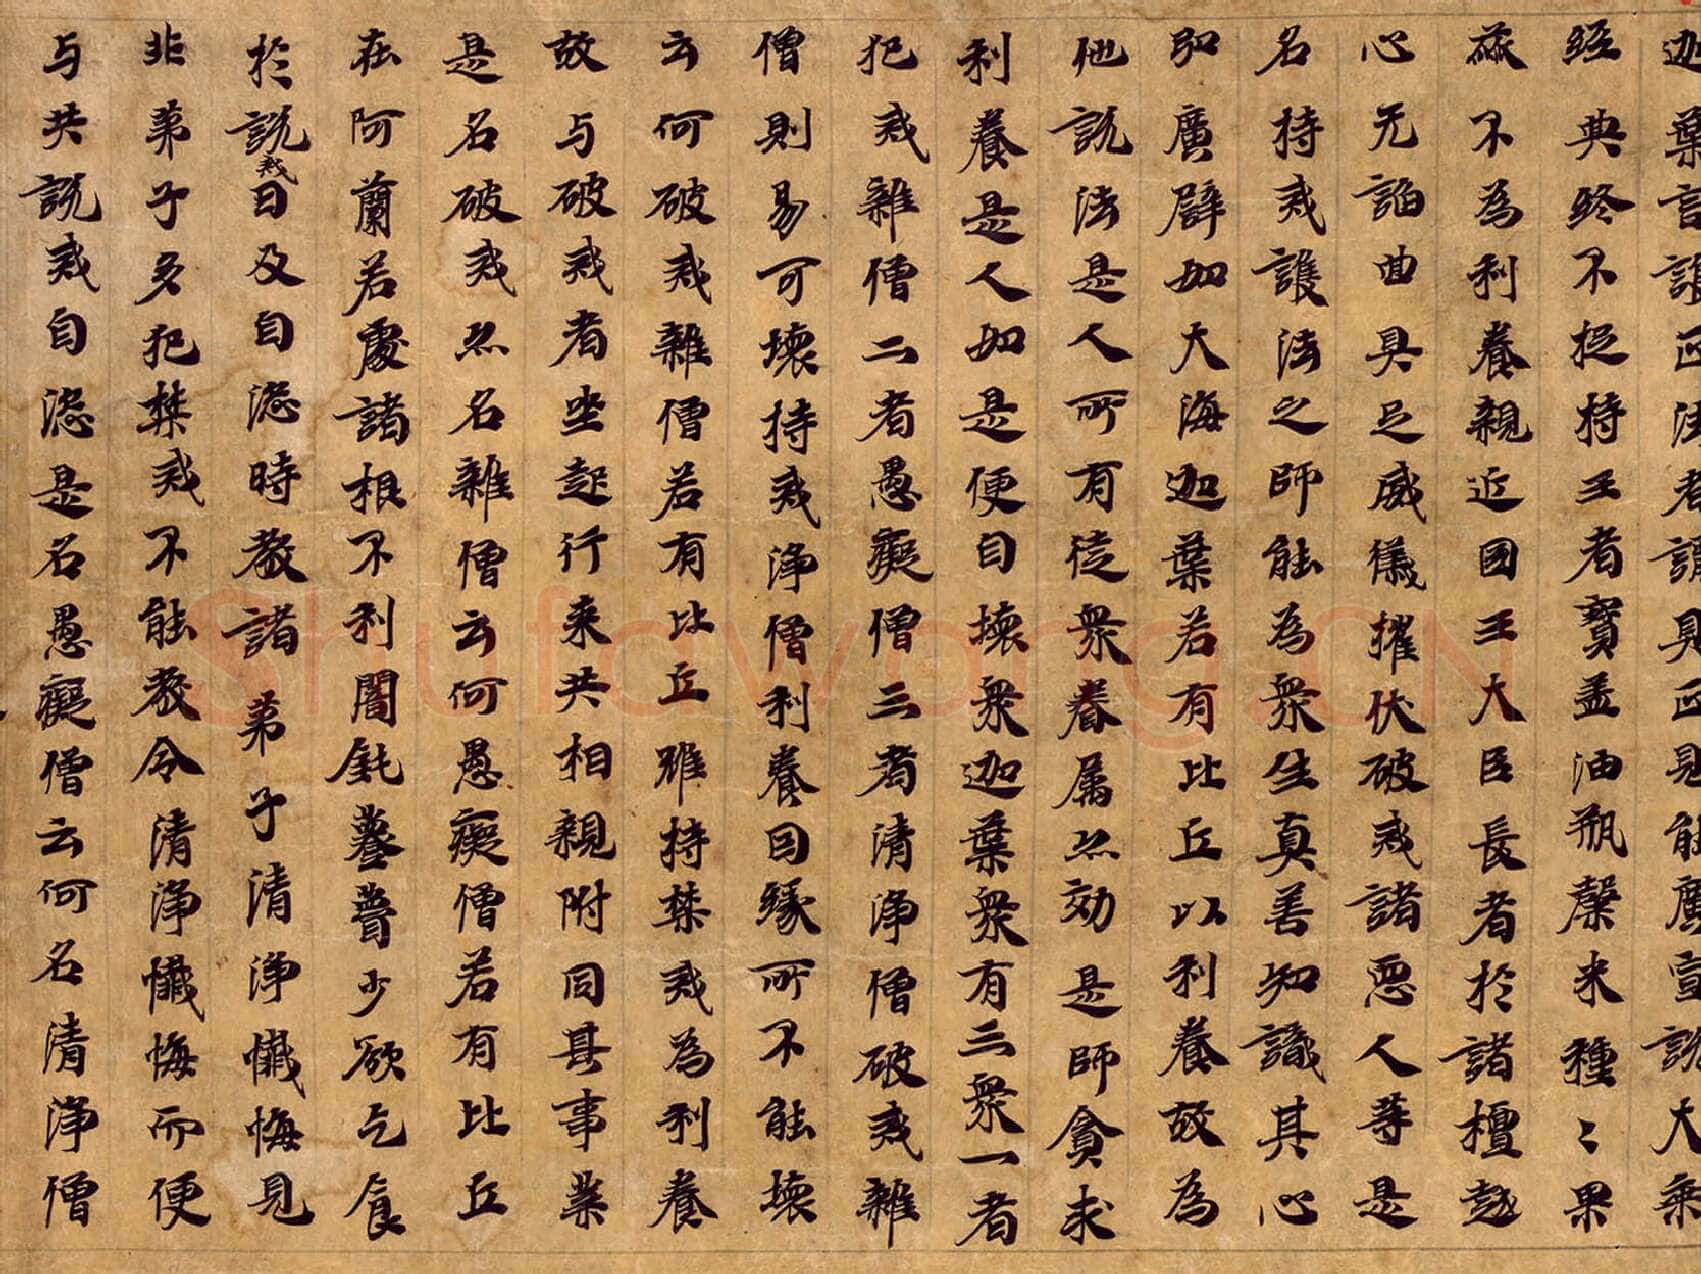 迦葉言護正法者謂具正見能廣宣說大乘
經典終不捉持王者寶盖油瓶糓米種〻果
蓏不為利養親近國王大臣長者於諸檀越
心无諂曲具足威儀摧伏破戒諸惡人等是
名持戒護法之師能為衆生真善知識其心
弘廣譬如大海迦葉若有比丘以利養故為
他說法是人所有徒衆眷属亦効是師貪求
利養是人如是便自壞衆迦葉衆有三衆一者
犯戒雜僧二者愚癡僧三者清淨僧破戒雜
僧則易可壞持戒淨僧利養因緣所不能壞
云何破戒雜僧若有比丘雖持禁戒為利養
故与破戒者坐起行来共相親附同其事業
是名破戒亦名雜僧云何愚癡僧若有比丘
在阿蘭若處諸根不利闇鈍瞢少欲乞食
於說戒日及自恣時教諸弟子清淨懺悔見
非弟子多犯禁戒不能教令清淨懺悔而便
与共說戒自恣是名愚癡僧云何名清淨僧
Shufawang.CN